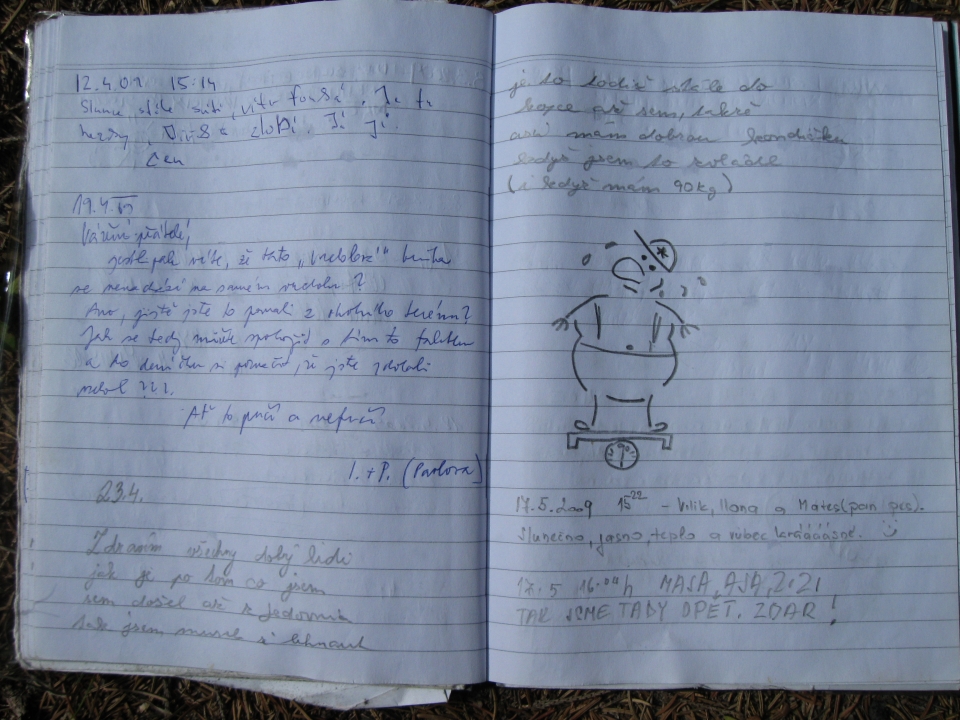 12.4.09 15:14
Slunce, stále svítí, vítr fouká. Je tu
hezky, zlobí. Jí jí.
19.4.09
Vážení přátelé,
jestlipak víte, že tato "vrcholová" kniha
se nenachází na samém vrcholu?
Ano, jistě jste to poznali z okolního terénu?
Jak se tedy můžete spokojit s tímto faktem
a do deníčku si poznačit, že jste zdolali
vrchol ???
Ať to pučí a nefučí
I. + P. (Pavlova)
23.4.
Zdravím všechny dobrý lidi
jak je po tom co jsem
sem došel až z Jedovnic
tak jsem musel si lehnout
je to totiž stále do
kopce až sem, takže
asi mám dobrou kondičku
když jsem to zvládl
(i když mám 90kg)
17.5.2009 15²² - Vilík, Ilona a Mates (pan pes).
Slunečno, jasno, teplo a vůbec krááááásné.
17.5 16.00h MÁŠA, AJA, ZIZI
TAK JSME TADY OPĚT. ZDAR!